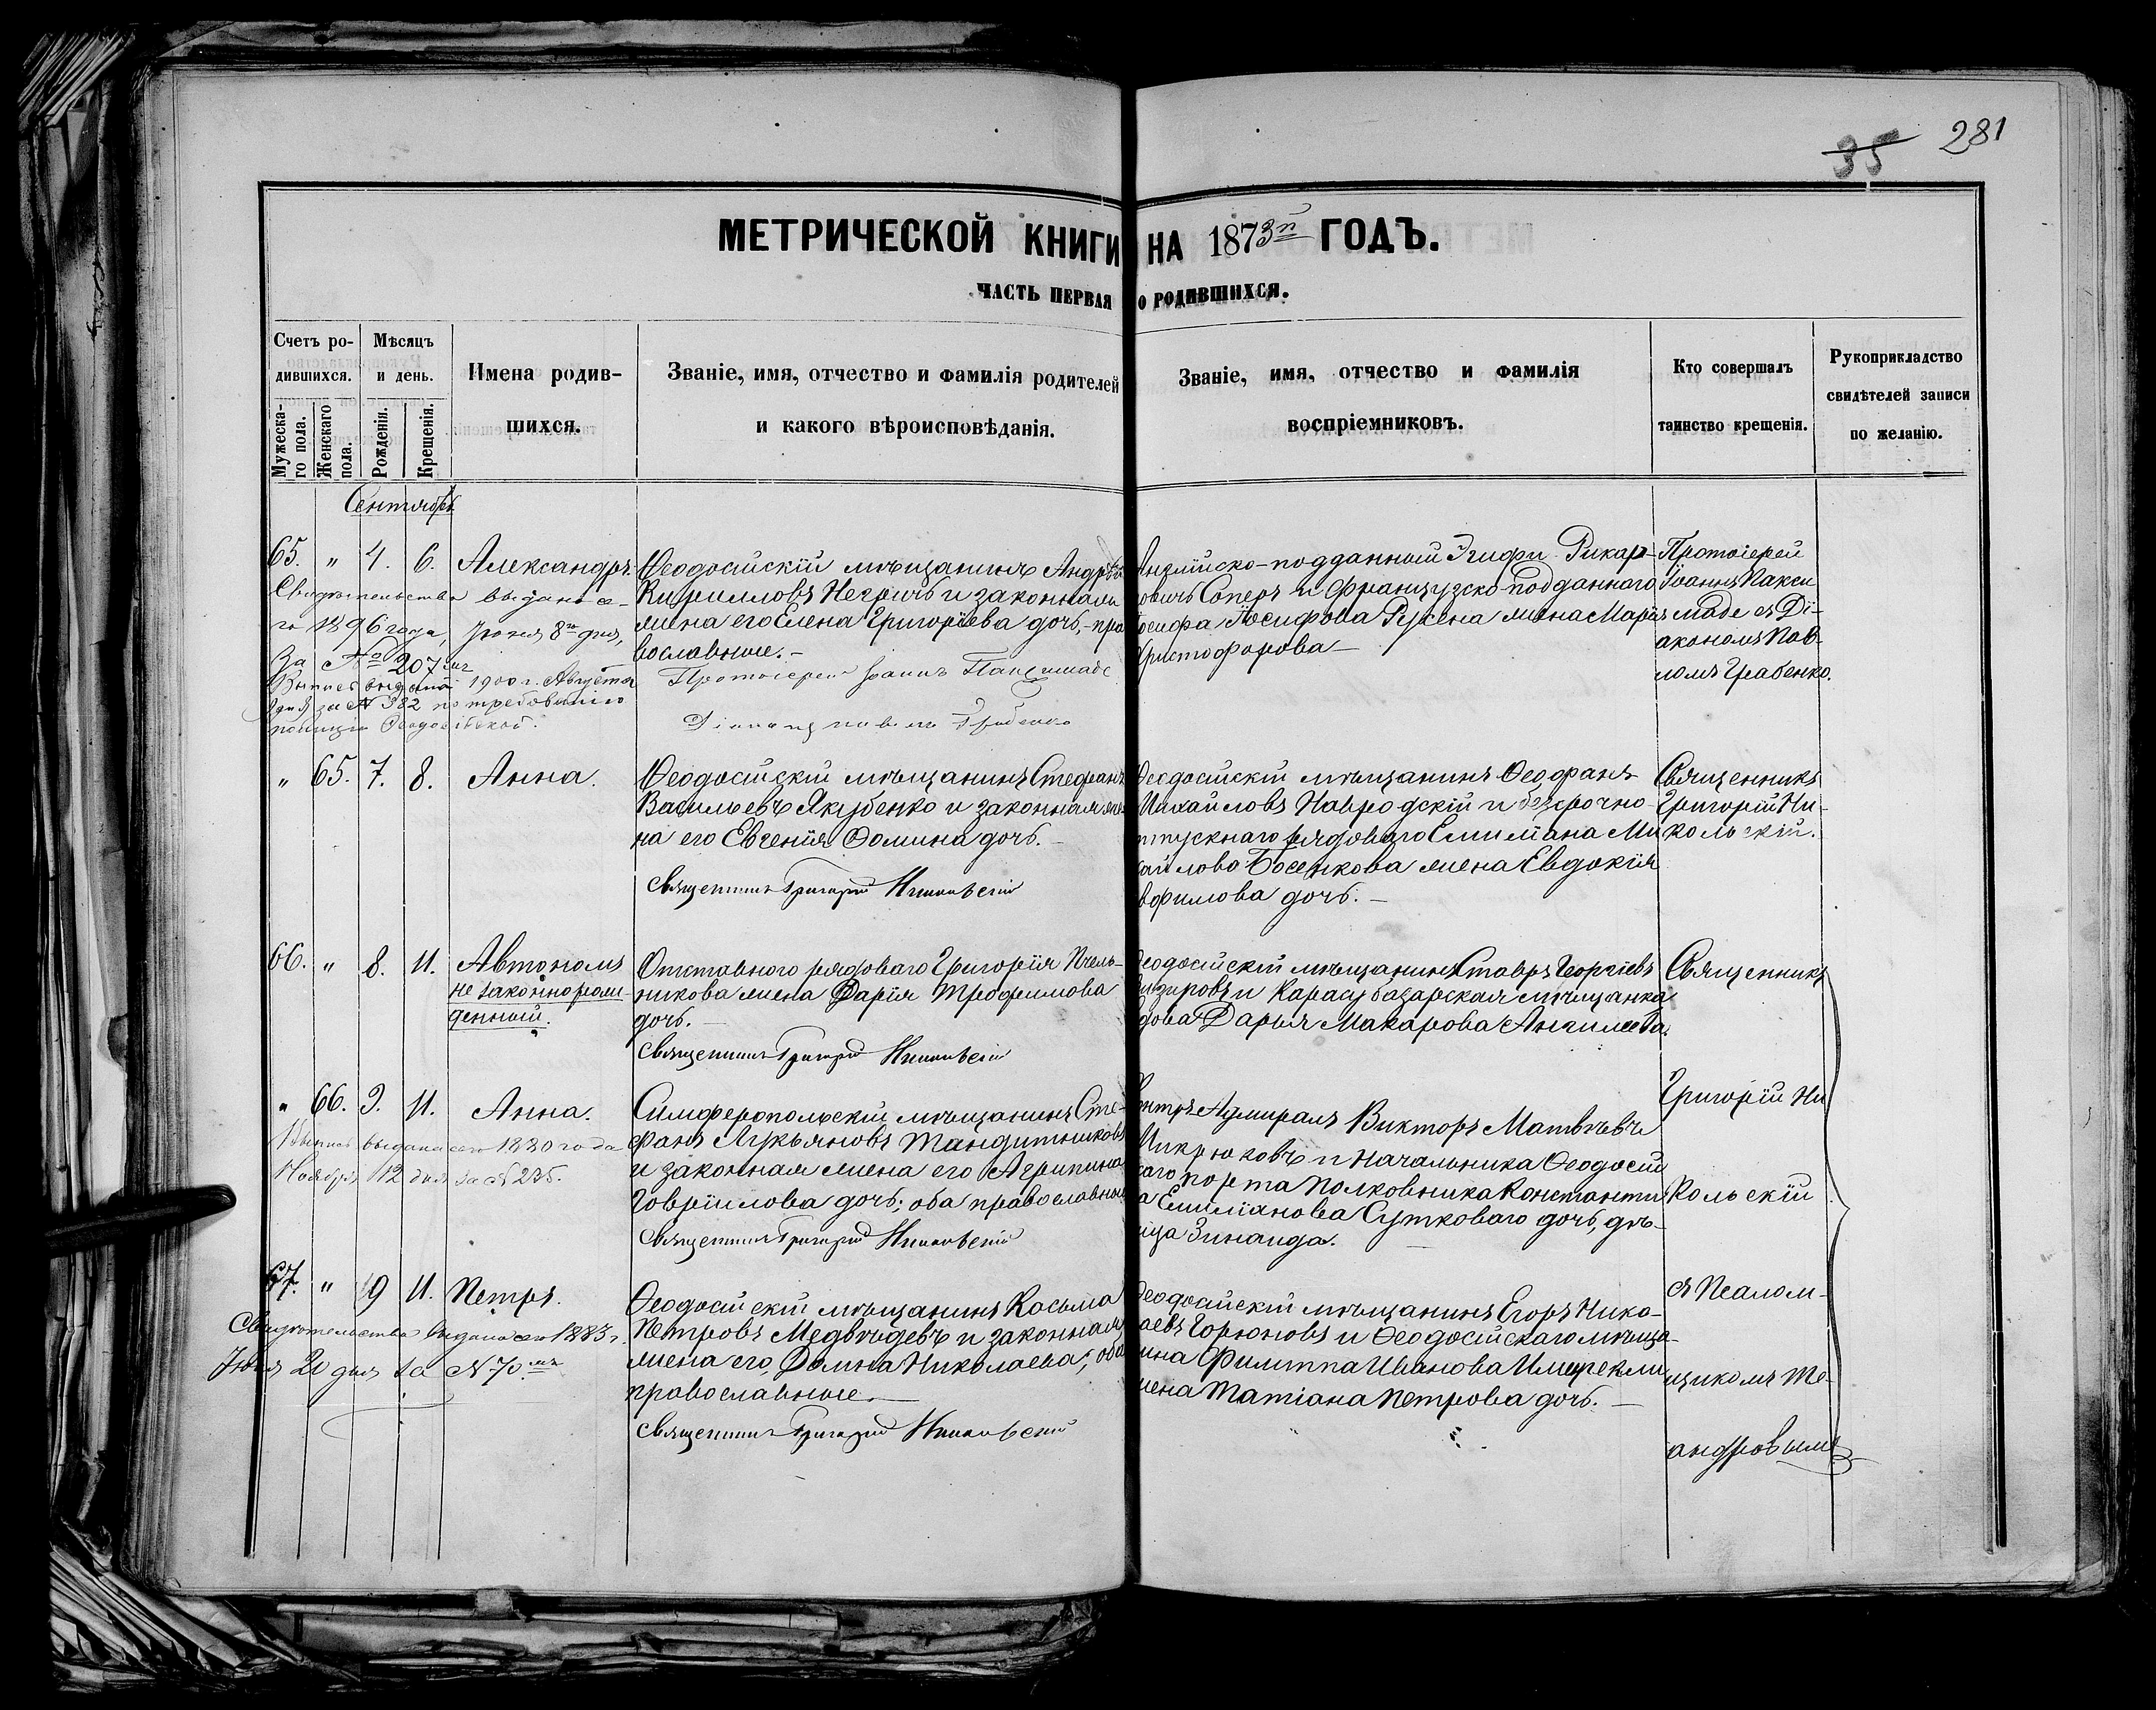 35 281
МЕТРИЧЕСКОЙ КНИГИ НА 1873й ГОДЪ.
ЧАСТЬ ПЕРВАЯ О РОДИВШИХСЯ.
Счетъ ро-
дившихся.
Мужеска-
го пола.
Женскаго
пола.
Мѣсяцъ
и день.
Рожденія.
Крещенія.
Имена родив-
шихся.
Званіе, имя, отчество и фамилія родителей
и какого вѣроисповѣданія.
Званіе, имя, отчество и фамилія
воспріемниковъ.
Кто совершалъ
таинство крещенія.
Рукоприкладство
свидѣтелей записи
по желанію.
Сентябрь
65. " 4. 6. Александръ.
Свидѣтельство выдано се-
го 1896 года, Іюня 8го дня,
за № 207мъ
1900 г. Августа
за № 382 по требованію
полиціи Ѳеодосійской.
Ѳеодосійскій мѣщанинъ Андрей
Кирилловъ Негричъ и законная
жена его Елена Григоріева дочь, – пра
вославные. –
Протоіерей Іоаннъ Паксимаде
Діаконъ Павелъ Грабенко
Англійско-подданный Рикар-
овичъ Соперъ и Французско-подданнаго
осифа Іосифова Русена жена Марія
Христофорова –
Протоіерей
Іоаннъ Пакси
маде съ Ді-
акономъ Пав-
ломъ Грабенко.
" 65. 7. 8. Анна.
Ѳеодосійскій мѣщанинъ Стефанъ
Васильевъ Якубенко и законная же-
на его Евгенія Ѳомина дочь. –
Священникъ Григорій Никольскій
Ѳеодосійскій мѣщанинъ Ѳеофанъ
Михайловъ Навродскій и безсрочно-
тпускнаго рядоваго Емиліана Ми
хайлова Босенкова жена Евдокія
вфимова дочь. –
Священникъ
Григорій Ни-
кольскій.
66. " 8. 11. Автономъ
незаконнорож
денный.
Отставного рядоваго Григорія Пчель-
никова жена Дарія Трофимова
дочь. –
Священникъ Григорій Никольскій
Ѳеодосійскій мѣщанинъ Ставръ Георгіевъ
и Карасубазарская мѣщанка
дова Дарья Макарова
Священникъ
" 66. 9. 11. Анна.
Выпись выдана сего 1880 года
Ноября 12 дня за №
Симферопольскій мѣщанинъ Сте-
фанъ Лукьяновъ Тандитниковъ
и законная жена его Агрипина
Говріилова дочь; оба православные
Священникъ Григорій Никольскій
Контръ-Адмиралъ Викторъ Матвѣевъ
Микрюковъ и Начальника Ѳеодосій
скаго порта Полковника Константи
а Емиліанова Сутковаго дочь, дѣ-
ица Зинаида. –
Григорій Ни
кольскій
67. " 9 11. Петръ.
Свидѣтельство выдано сего 1883 г.
Іюня 20 дня за № 70мъ
Ѳеодосійскій мѣщанинъ Косьма
Петровъ Медвѣдевъ и законная
жена его, Домна Николаева; оба
православные. –
Священникъ Григорій Никольскій
Ѳеодосійскій мѣщанинъ Егоръ Нико-
аевъ Горюновъ и Ѳеодосійскаго мѣща-
ина Филиппа Иванова
жена Татіана Петрова дочь. –
съ Псалом-
щикомъ Те-
андровымъ